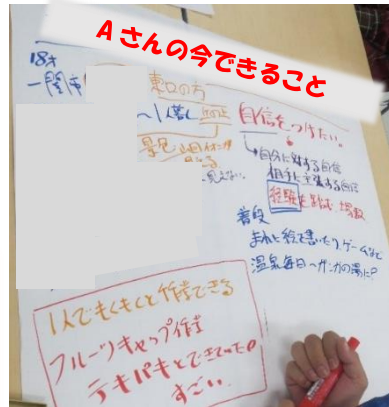 Aさんの今できること
18才
一関市
東口の方
〜1人暮し
景色
見えない。
自信をつけたい。
→自分に対する自信
相手に主張する自信
経験を踏む、場数
普段
まれに絵を書いたり、ゲームなど
温泉毎日〜
1人でもくもくと作業できる
フルーツキャップ作業
テキパキとできてた。
すごい。